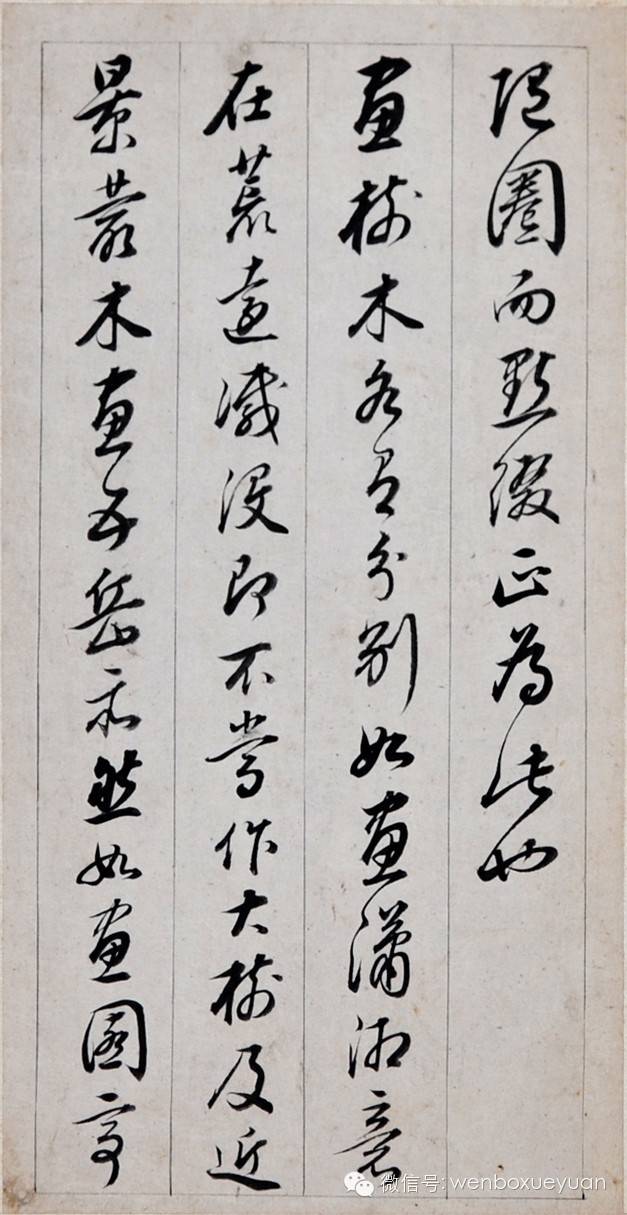 圈而點綴正為此也
畫樹木各有分別如畫瀟湘意
在荒遠滅沒即不當作大樹及近
景叢木畫五岳亦然如畫園亭
微信号: wenboxueyuan